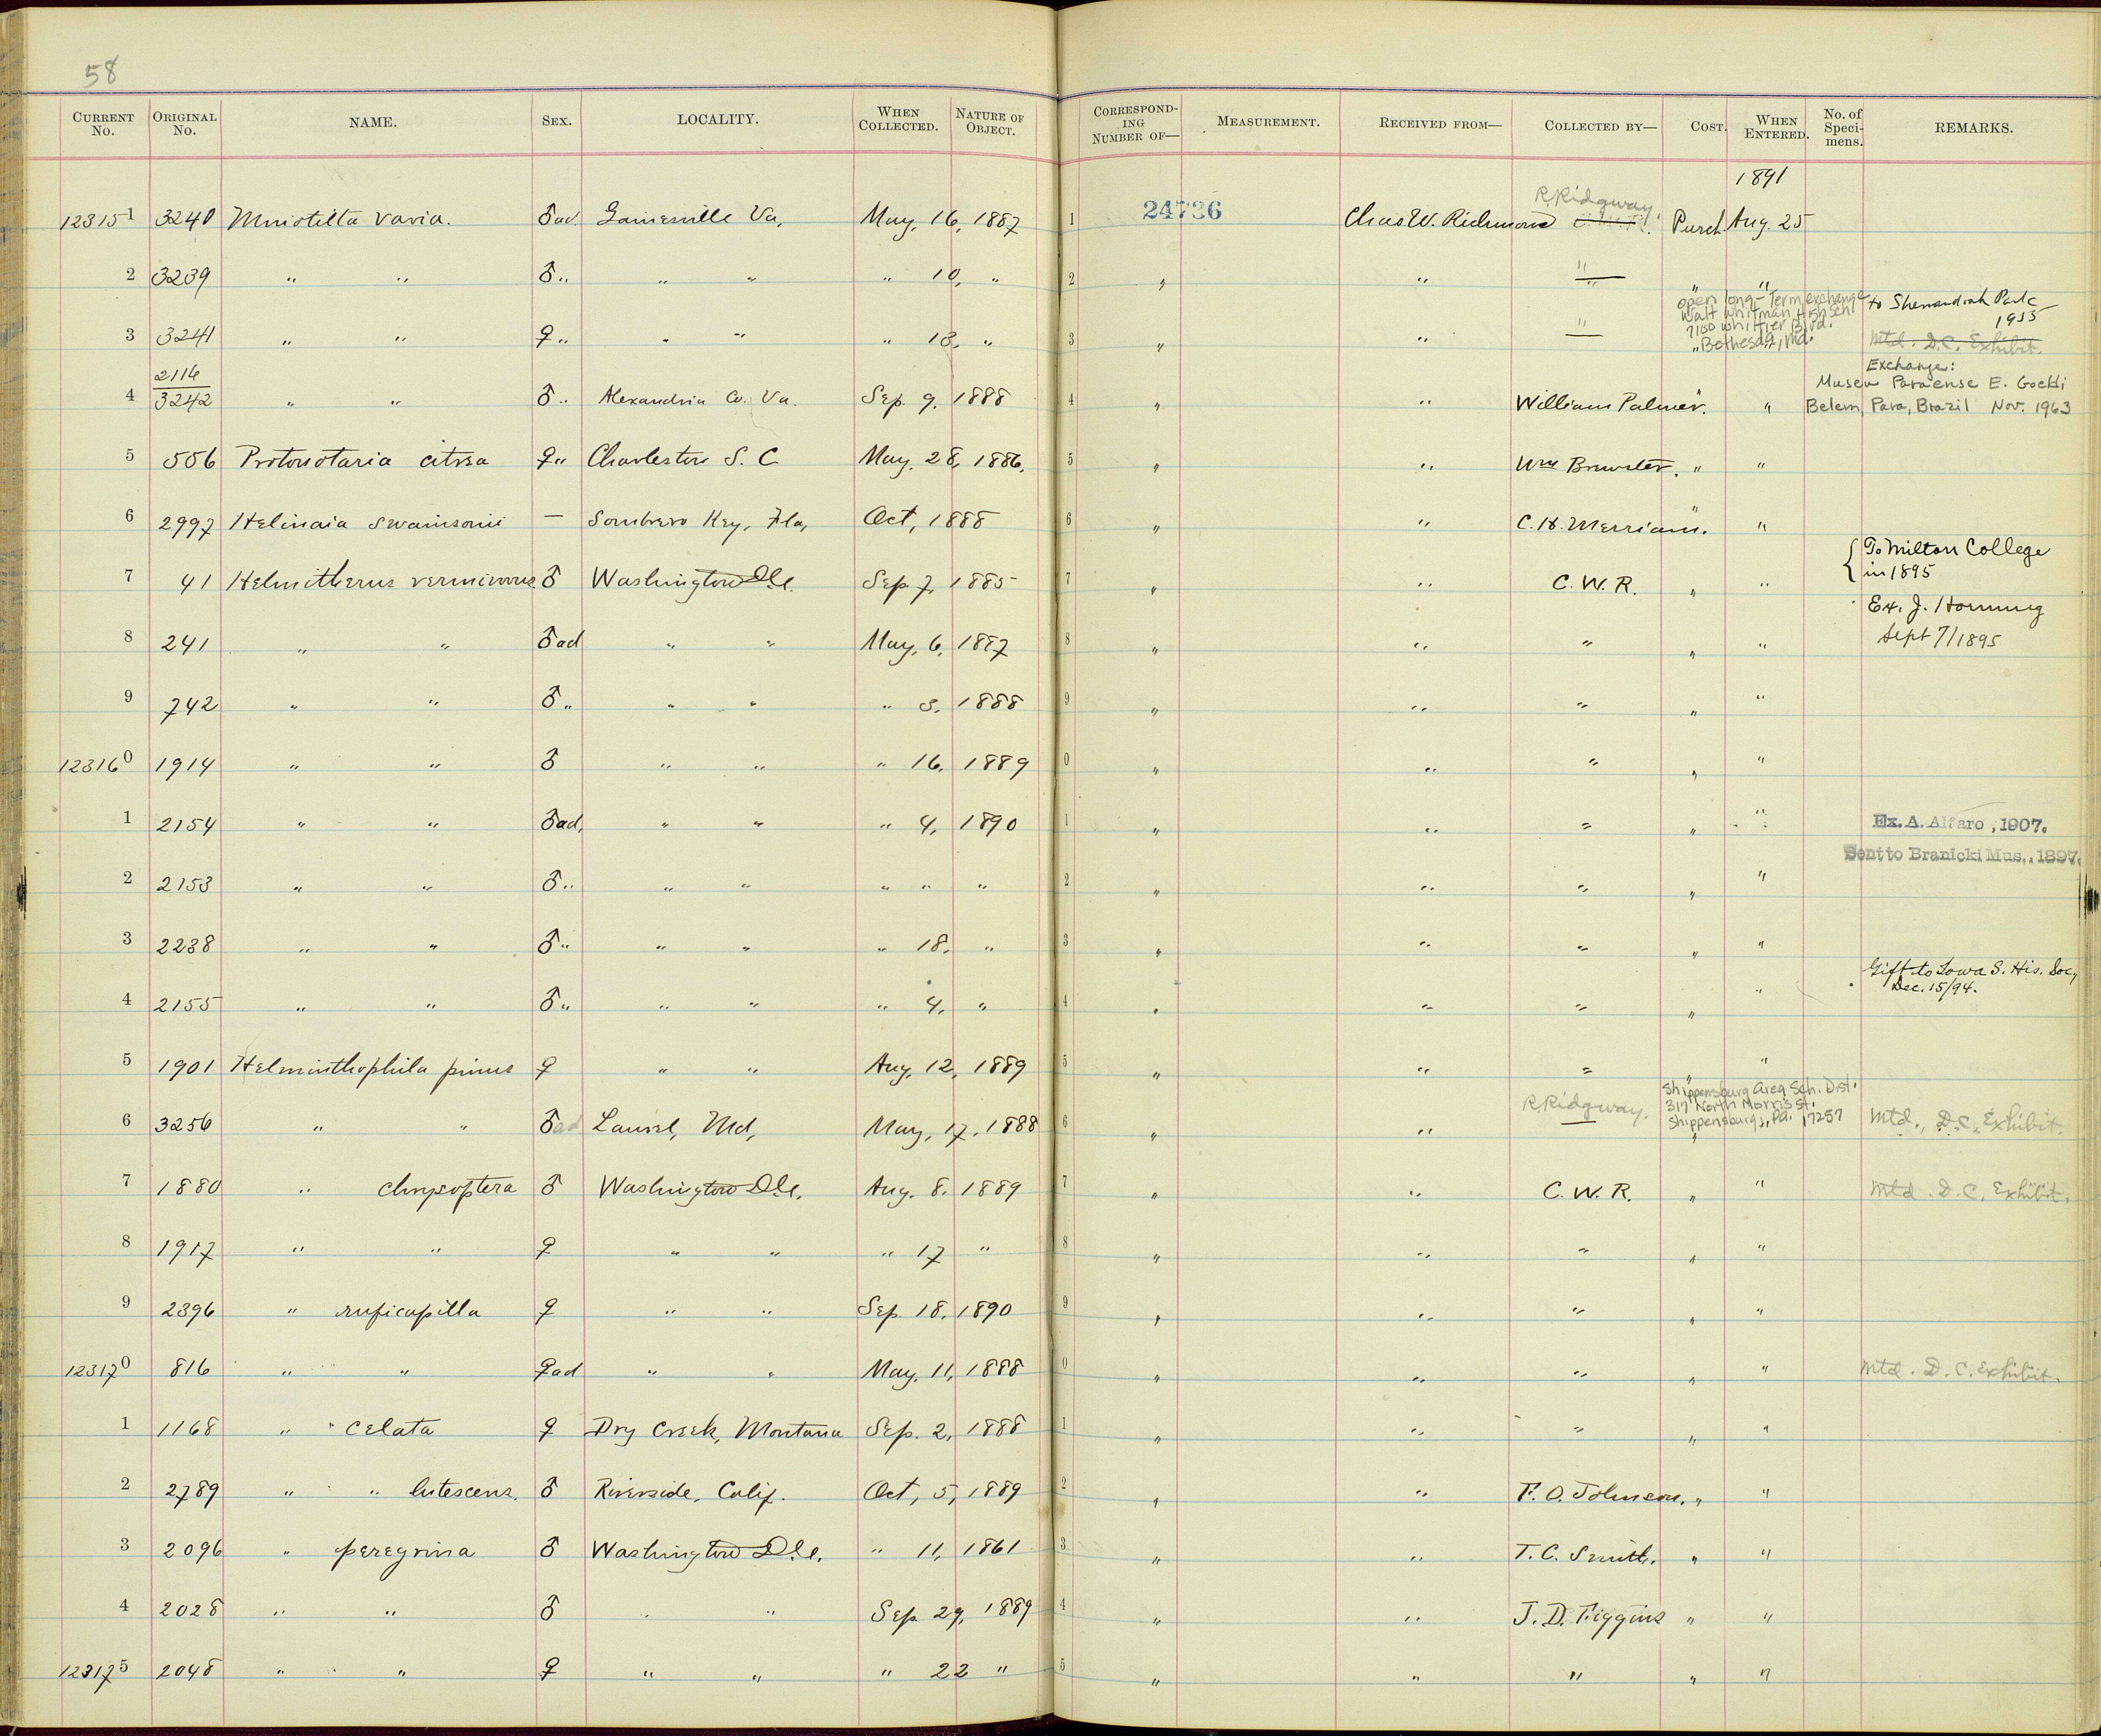 58
CURRENT No. ORIGINAL No. NAME. SEX. LOCALITY. WHEN COLLECTED. NATURE OF OBJECT. CORRESPONDING NUMBER OF— MEASUREMENT. RECEIVED FROM— COLLECTED BY— COST. WHEN ENTERED. No. of Specimens. REMARKS.
1891
R. Ridgway.
123151 3240 Mniotilta varia. ♂ ad. Gainesville Va, May, 16, 1887 1 24736 Chas W. Richmond C. W. R. Purch. Aug. 25
2 3239 " " ♂ " " " " 10, " 2 " " " " "
open long-Term exchange
Walt Whitman High Schl
7100 Whittier Blvd.
Bethesda, Md.
to Shenandoah Park
1935
3 3241 " " ♀ " " " " 13, " 3 " " " " " Mtd. D.C. Exhibit.
2116
4 3242 " " ♂ " Alexandria Co. Va. Sep. 9, 1888 4 " " William Palmer. " "
Exchange:
Museu Paraense E. Goeldi
Belem, Para, Brazil Nov. 1963
5 556 Protonotaria citrea ♀ " Charleston S. C May. 28, 1886, 5 " " Wm Brewster. " "
6 2997 Helinaia swainsonii — Sombrero Key, Fla, Oct, 1888 6 " " C. H. Merriam. " "
7 41 Helmitherus vermivorus ♂ Washington D.C. Sep. 7, 1885 7 " " C. W. R. " " { To Milton College
in 1895
8 241 " " ♂ ad " " May, 6, 1887 8 " " " " " Ex. J. Hornung
Sept 7/1895
9 742 " " ♂ " " " " 3, 1888 9 " " " " "
123160 1914 " " ♂ " " " 16, 1889 0 " " " " "
1 2154 " " ♂ ad, " " " 4, 1890 1 " " " " " Ex. A. Alfaro, 1907.
Sent to Branicki Mus., 1897.
2 2153 " " ♂ " " " " " " 2 " " " " "
3 2238 " " ♂ " " " " 18, " 3 " " " " "
4 2155 " " ♂ " " " " 4, " 4 " " " " " Gift to Iowa S. His. Soc,
Dec. 15/94.
5 1901 Helminthophila pinus ♀ " " Aug, 12, 1889 5 " " " " "
6 3256 " " ♂ ad Laurel, Md, May, 17, 1888 6 " " R. Ridgway. "
Shippensburg Area Sch. Dist.
317 North Morris St.
Shippensburg, Pa. 17257
Mtd., D.C. Exhibit.
7 1880 " chrysoptera ♂ Washington D.C. Aug. 8, 1889 7 " " C. W. R. " " Mtd. D. C. Exhibit.
8 1917 " " ♀ " " " 17 " 8 " " " " "
9 2396 " ruficapilla ♀ " " Sep. 18, 1890 9 " " " " "
123170 816 " " ♀ ad " " May, 11, 1888 0 " " " " " Mtd. D. C. Exhibit.
1 1168 " " celata ♀ Dry Creek, Montana Sep. 2, 1888 1 " " " " "
2 2789 " " lutescens. ♂ Riverside, Calif. Oct, 5, 1889 2 " " F. O. Johnson. " "
3 2096 " peregrina ♂ Washington D.C. " 11, 1861 3 " " T. C. Smith. " "
4 2028 " " ♂ " " Sep. 29, 1889 4 " " J. D. Figgins " "
123175 2048 " " ♀ " " " 22 " 5 " " " " "